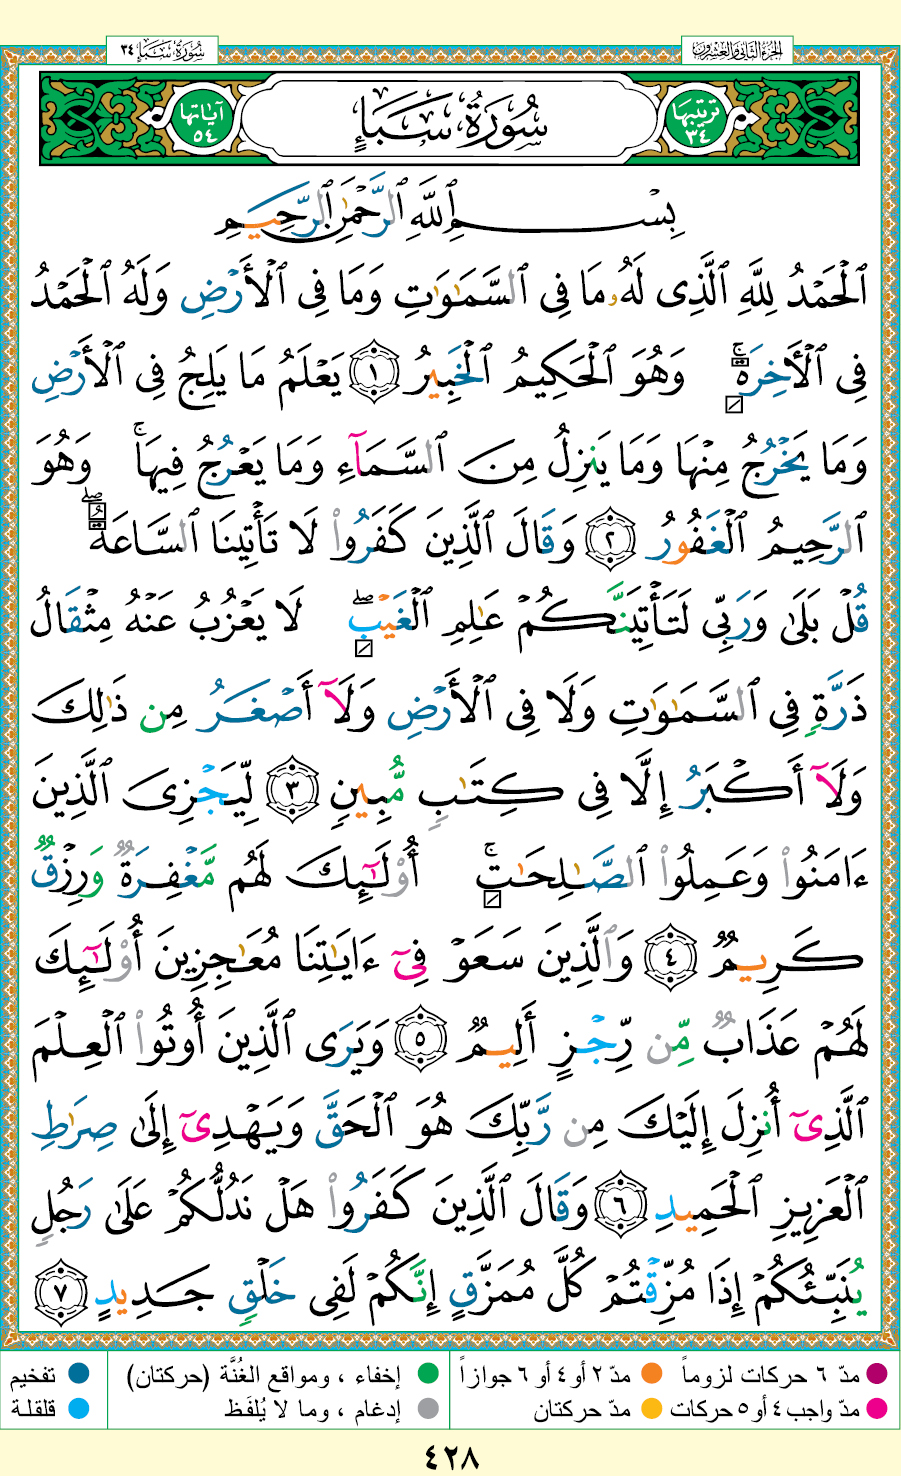 الجزء الثاني والعشرون
سُورَةُ سَبَإٍ ٣٤
ترتيبها ٣٤
سُورَةُ سَبَإٍ
آياتها ٥٤
بِسْمِ ٱللَّهِ ٱلرَّحْمَٰنِ ٱلرَّحِيمِ
ٱلْحَمْدُ لِلَّهِ ٱلَّذِى لَهُۥ مَا فِى ٱلسَّمَٰوَٰتِ وَمَا فِى ٱلْأَرْضِ وَلَهُ ٱلْحَمْدُ
فِى ٱلْأَخِرَةِ ۚ وَهُوَ ٱلْحَكِيمُ ٱلْخَبِيرُ ١ يَعْلَمُ مَا يَلِجُ فِى ٱلْأَرْضِ
وَمَا يَخْرُجُ مِنْهَا وَمَا يَنزِلُ مِنَ ٱلسَّمَآءِ وَمَا يَعْرُجُ فِيهَا ۚ وَهُوَ
ٱلرَّحِيمُ ٱلْغَفُورُ ٢ وَقَالَ ٱلَّذِينَ كَفَرُوا۟ لَا تَأْتِينَا ٱلسَّاعَةُ ۖ
قُلْ بَلَىٰ وَرَبِّى لَتَأْتِيَنَّكُمْ عَٰلِمِ ٱلْغَيْبِ ۖ لَا يَعْزُبُ عَنْهُ مِثْقَالُ
ذَرَّةٍ فِى ٱلسَّمَٰوَٰتِ وَلَا فِى ٱلْأَرْضِ وَلَآ أَصْغَرُ مِن ذَٰلِكَ
وَلَآ أَكْبَرُ إِلَّا فِى كِتَٰبٍ مُّبِينٍ ٣ لِّيَجْزِىَ ٱلَّذِينَ
ءَامَنُوا۟ وَعَمِلُوا۟ ٱلصَّٰلِحَٰتِ ۚ أُو۟لَٰٓئِكَ لَهُم مَّغْفِرَةٌ وَرِزْقٌ
كَرِيمٌ ٤ وَٱلَّذِينَ سَعَوْ فِىٓ ءَايَٰتِنَا مُعَٰجِزِينَ أُو۟لَٰٓئِكَ
لَهُمْ عَذَابٌ مِّن رِّجْزٍ أَلِيمٌ ٥ وَيَرَى ٱلَّذِينَ أُوتُوا۟ ٱلْعِلْمَ
ٱلَّذِىٓ أُنزِلَ إِلَيْكَ مِن رَّبِّكَ هُوَ ٱلْحَقَّ وَيَهْدِىٓ إِلَىٰ صِرَٰطِ
ٱلْعَزِيزِ ٱلْحَمِيدِ ٦ وَقَالَ ٱلَّذِينَ كَفَرُوا۟ هَلْ نَدُلُّكُمْ عَلَىٰ رَجُلٍ
يُنَبِّئُكُمْ إِذَا مُزِّقْتُمْ كُلَّ مُمَزَّقٍ إِنَّكُمْ لَفِى خَلْقٍ جَدِيدٍ ٧
مدّ ٦ حركات لزوماً مدّ ٢ أو ٤ أو ٦ جوازاً إخفاء ، ومواقع الغُنَّة (حركتان) تفخيم
مدّ واجب ٤ أو ٥ حركات مدّ حركتان إدغام ، وما لا يُلفَظ قلقلة
٤٢٨